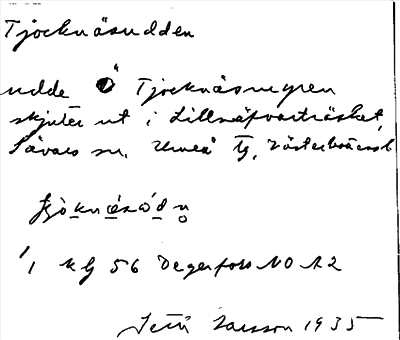 Tjocknäsudden
udde å Tjocknäsmyren
skjuter ut i Lillsäfvarträsket,
Sävars sn. Umeå tg, Västerbottens l
1/1 kbl 56 Degerfors NO A2
Larsson 1935